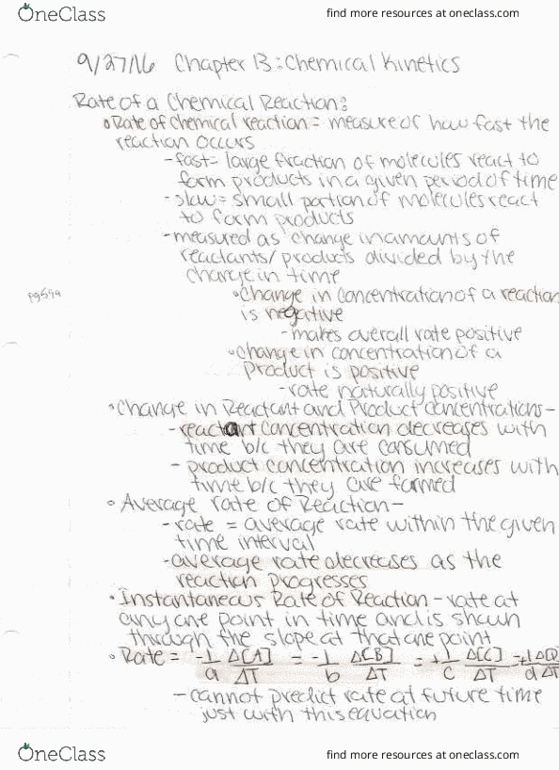 OneClass find more resources at oneclass.com
9/27/16 Chapter 13: Chemical Kinetics
Rate of a Chemical Reaction:
• Rate of chemical reaction = measure of how fast the
reaction occurs
- fast = large fraction of molecules react to
form products in a given period of time
- slow = small portion of molecules react
to form products
- measured as change in amounts of
reactants/products divided by the
change in time
pg 599
• change in concentration of a reaction
is negative
- makes overall rate positive
• change in concentration of a
product is positive
- rate naturally positive
• Change in Reactant and Product Concentrations -
- reactant concentration decreases with
time b/c they are consumed
- product concentration increases with
time b/c they are formed
• Average rate of Reaction -
- rate = average rate within the given
time interval
- average rate decreases as the
reaction progresses
• Instantaneous Rate of Reaction - rate at
any one point in time and is shown
through the slope at that one point
• Rate = -1/a Δ[A]/ΔT = -1/b Δ[B]/ΔT = +1/c Δ[C]/ΔT = +1/d Δ[D]/ΔT
- cannot predict rate at future time
just with this equation
OneClass find more resources at oneclass.com